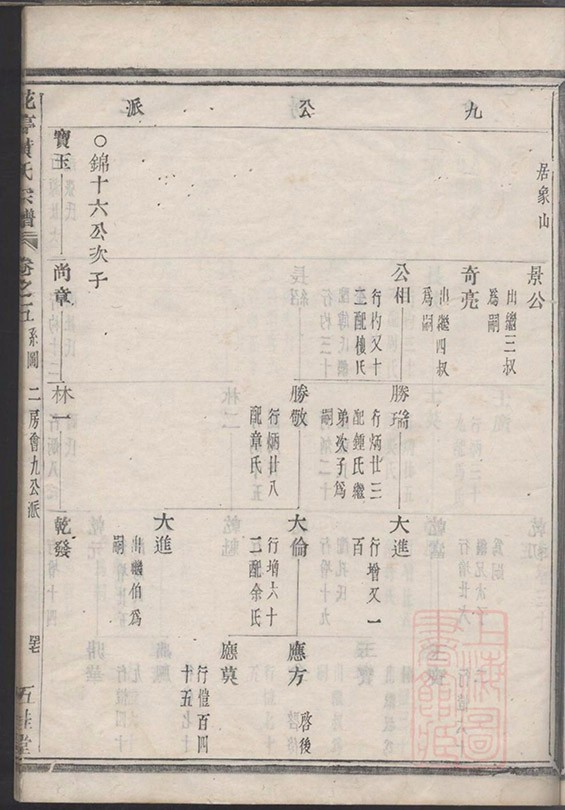 九公派
居象山
景公
出繼三叔
為嗣
奇亮
出繼四叔
為嗣
公相
行杓又十
三配樓氏
勝瑞
行炳廿三
配鍾氏繼
弟次子為
嗣
大進
行增又一
百
勝敬
行炳廿八
配章氏
大倫
行增六十
二配余氏
應方
啓後
應奠
行愷百四
十五
大進
出繼伯為
嗣
○錦十六公次子
寶玉
尚章
林一
乾發
花亭黃氏宗譜
卷之五系圖
二房會九公派
五桂堂
上海圖書館藏